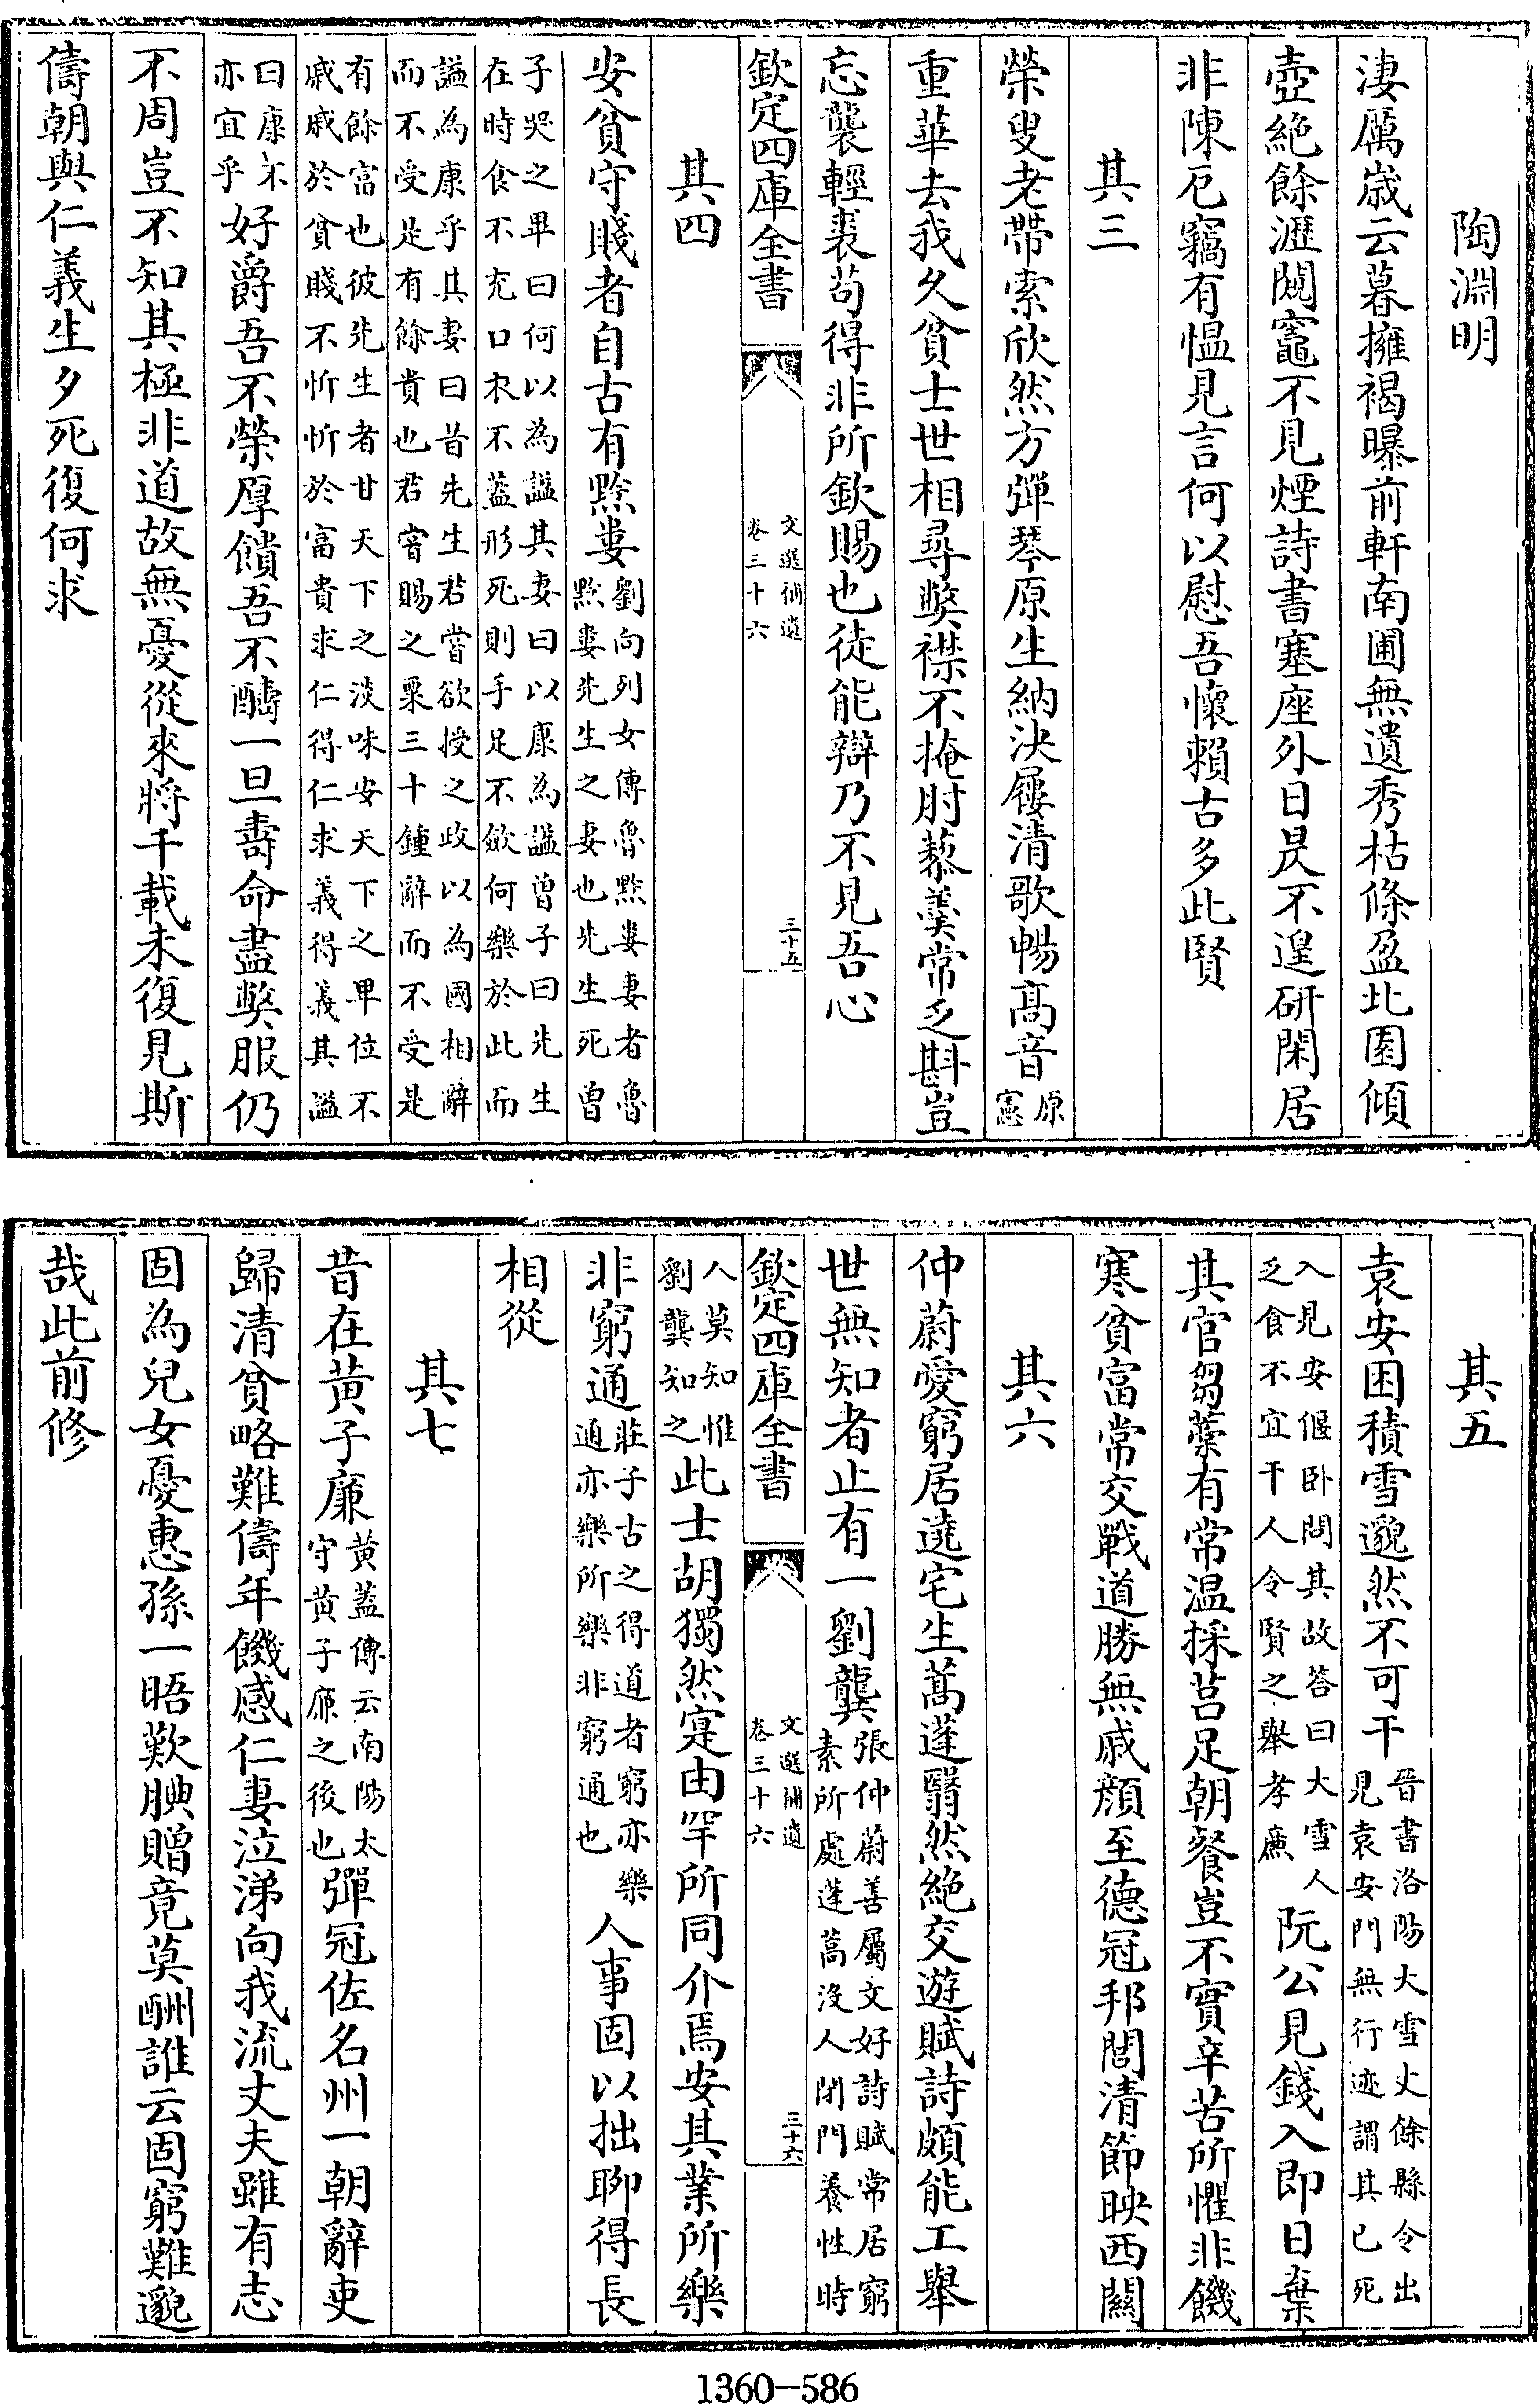 陶淵明
淒厲歲云暮擁褐曝前軒南圃無遺秀枯條盈北園傾
壺絶餘瀝闚竈不見煙詩書塞座外日昃不遑研閑居
非陳厄竊有愠見言何以慰吾懷賴古多此賢
其三
榮叟老帶索欣然方彈琴原生納決屨清歌暢髙音原
憲
重華去我久貧士世相尋獘襟不掩肘藜羹常乏斟豈
忘襲輕裘苟得非所欽賜也徒能辯乃不見吾心
欽定四庫全書
文選補遺
卷三十六
三十五
其四
安貧守賤者自古有黔婁劉向列女傳魯黔婁妻者魯
黔婁先生之妻也先生死曽
子哭之畢曰何以為諡其妻曰以康為諡曽子曰先生
在時食不充口衣不葢形死則手足不歛何樂於此而
諡為康乎其妻曰昔先生君嘗欲授之政以為國相辭
而不受是有餘貴也君嘗賜之粟三十鍾辭而不受是
有餘富也彼先生者甘天下之淡味安天下之卑位不
戚戚於貧賤不忻忻於富貴求仁得仁求義得義其諡
曰康不
亦宜乎
好爵吾不榮厚饋吾不酬一旦壽命盡獘服仍
不周豈不知其極非道故無憂從來將千載未復見斯
儔朝與仁義生夕死復何求
其五
袁安困積雪邈然不可干晉書洛陽大雪丈餘縣令出
見袁安門無行迹謂其已死
入見安偃卧問其故答曰大雪人
乏食不宜干人令賢之舉孝亷
阮公見錢入即日棄
其官芻藁有常温採莒足朝餐豈不實辛苦所懼非饑
寒貧富常交戰道勝無戚顔至德冠邦閭清節映西關
其六
仲蔚愛窮居遶宅生蒿蓬翳然絶交遊賦詩頗能工舉
世無知者止有一劉龔張仲蔚善屬文好詩賦常居窮
素所處蓬蒿沒人閉門養性時
欽定四庫全書
文選補遺
卷三十六
三十六
人莫知惟
劉龔知之
此士胡獨然寔由罕所同介焉安其業所樂
非窮通莊子古之得道者窮亦樂
通亦樂所樂非窮通也
人事固以拙聊得長
相從
其七
昔在黄子亷黄葢傳云南陽太
守黄子亷之後也
彈冠佐名州一朝辭吏
歸清貧略難儔年饑感仁妻泣涕向我流丈夫雖有志
固為兒女憂惠孫一晤歎腆贈竟莫酬誰云固窮難邈
哉此前修
1360-586